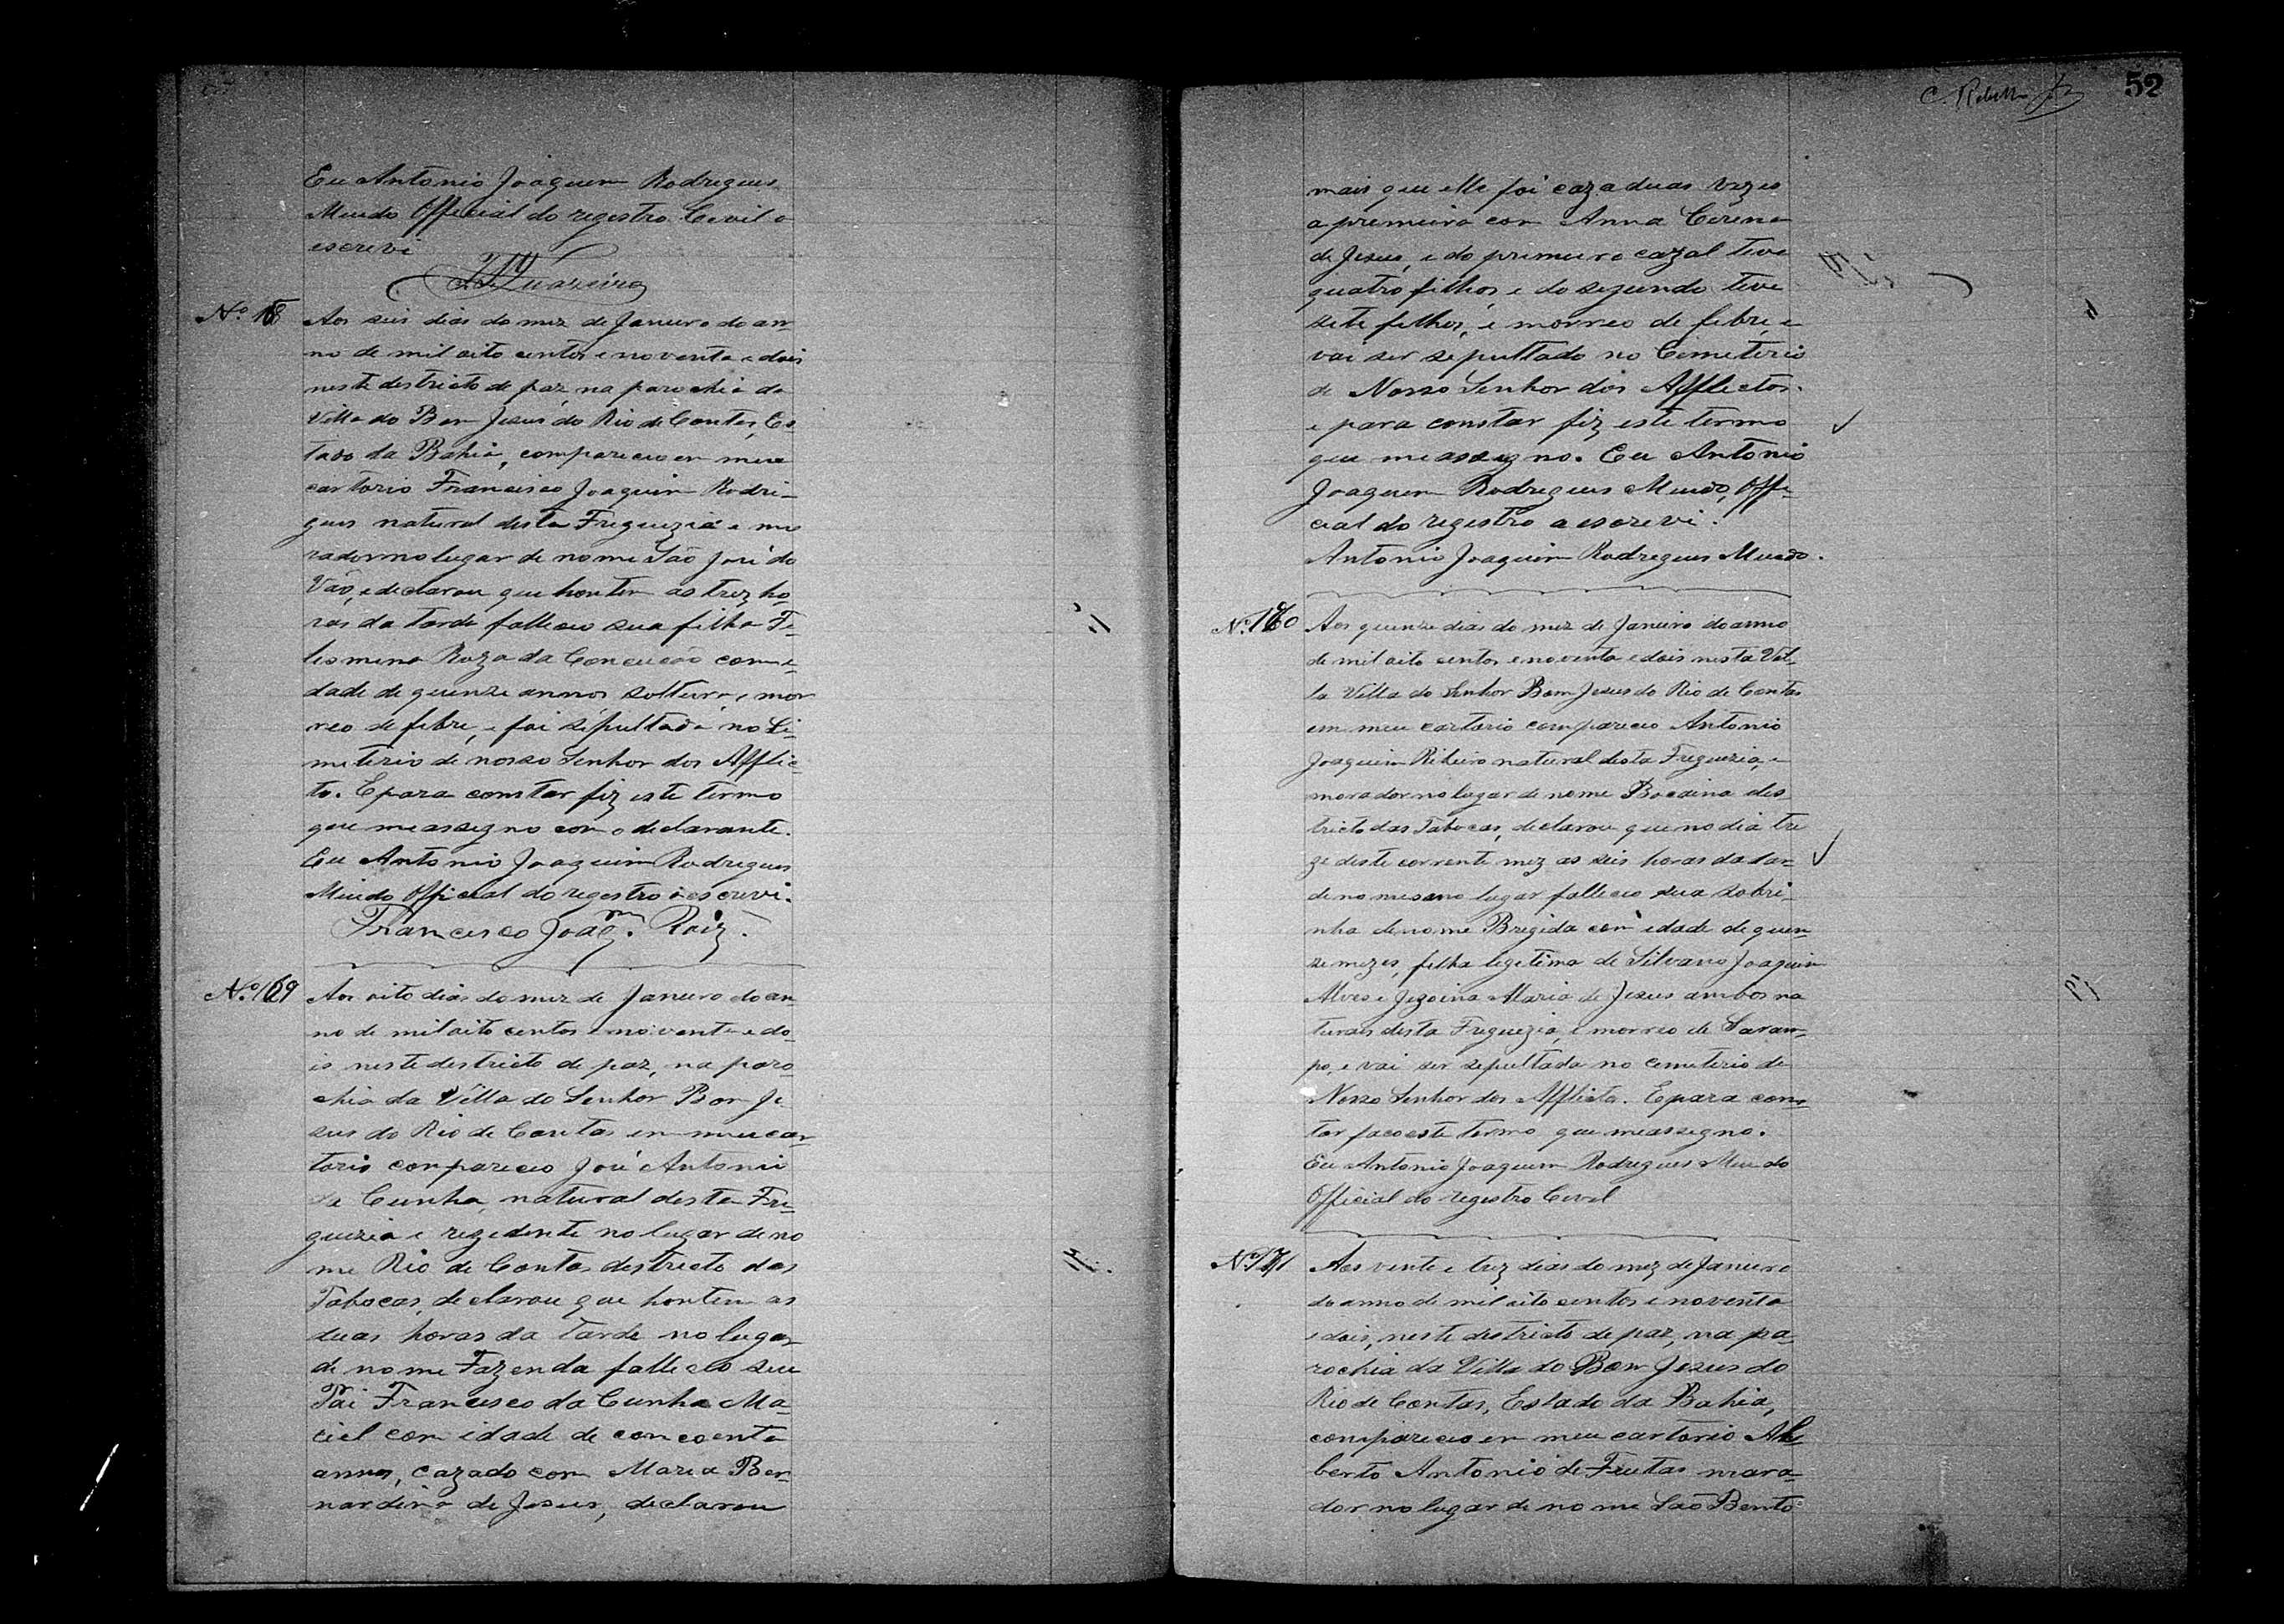 Eu Antonio Joaquim Rodrigues
Meudo Official do registro Cevil o
escrevi
Nº 168
Aos seis dias do mez de Janeiro do an
no de mil oito centos e noventa e dois
neste destricto de paz na parochia da
Villa do Bom Jesus do Rio de Contas, Es
tado da Bahia, compareceo em meu
cartorio Francisco Joaquim Rodri-
gues natural desta Freguezia e mo
rador no lugar de nome São José do
Vão, e declarou que hontem as trez ho
ras da tarde falleceo sua filha Fe
lesmena Roza da Conceicão com e
dade de quenze annos, solteira, e mor
reo de febre, e foi sepultada no Si-
meterio de nosso Senhor dos Afflic-
to. E para constar fiz este termo
que me assegno com o declarante.
Eu Antonio Joaquim Rodrigues
Meudo Official do regestro o escrevi.
Francisco Joaqm. Roiz.
Nº 169
Aos oito dias do mez de Janeiro do an
no de mil oito centos e noventa e do
is neste destricto de paz, na paro
chia da Villa do Senhor Bom Je
sus do Rio de Contas em meu car
torio compareceo José Antonio
da Cunha, natural desta Fre
guezia e rezedente no lugar de no
me Rio de Contas destricto das
Tabocas, declarou que hontem as
duas horas da tarde no lugar
de nome Fazenda falleceo seu
Pai Francisco da Cunha Ma
ciel com idade de concoenta
annos, cazado com Maria Ber
nardina de Jesus, declarou
52
mais que elle foi caza duas vezes
a premeira com Anna Cerena
de Jesus, e do premeiro cazal teve
quatro filhos e do segundo teve
sete filhos, e morreo de febre, e
vai ser sepultado no Cemeterio
de Nosso Senhor dos Afflictos.
e para constar fiz este termo
que me assegno. Eu Antonio
Joaquem Rodrigues Meudo, Offi-
cial do regestro a escrevi.
Antonio Joaquim Rodregues Meudo.
Nº 170
Aos quenze dias do mez de Janeiro do anno
de mil oito centos e noventa e dois nesta Vil
la Villa do Senhor Bom Jesus do Rio de Contas
em meu cartorio compareceo Antonio
Joaquim Ribeiro natural desta Freguezia, e
morador no lugar de nome Bocaina des
tricto das Tabocas, declarou que no dia tre
ze deste corrente mez as seis horas da tar
de no mesmo lugar falleceo sua sobri-
nha de nome Bregida com idade de quen
ze mezes, filha legetima de Silvano Joaquim
Alves e Jezoina Maria de Jesus ambos na
turais desta Freguezia, e morreo de Saram
po, e vai ser sepultada no cemeterio de
Nosso Senhor dos Afflicto. E para cons
tar faco este termo que me assegno.
Eu Antonio Joaquem Rodregues Meudo
Official do registro Cevel
Nº 171
Aos vente e trez dias do mez de Janeiro
do anno de mil oito centos e noventa
e dois, neste destricto de paz, na pa
rochia da Villa do Bom Jesus do
Rio de Contas, Estado da Bahia,
compareceo em meu cartorio Al
berto Antonio de Freitas mora-
dor no lugar de nome São Bento